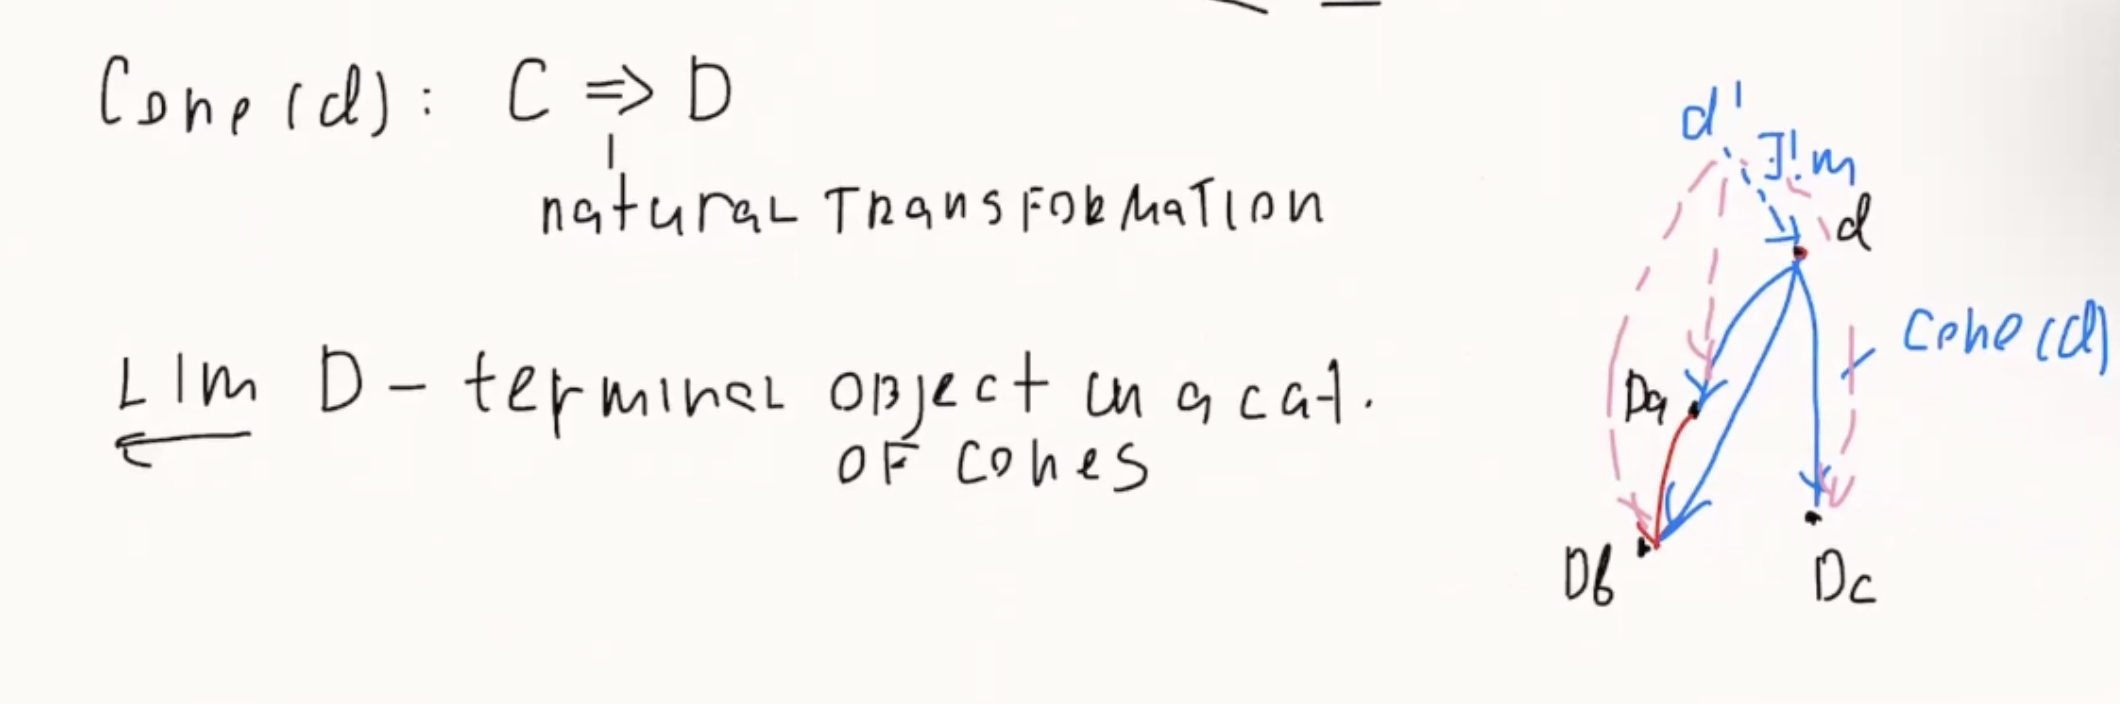 Cone(d): C => D
natural TRANSFORMATION
Lim D - terminal object in a cat.
OF cones
d'
∃!m
d
Cone(d)
Da
Db
Dc